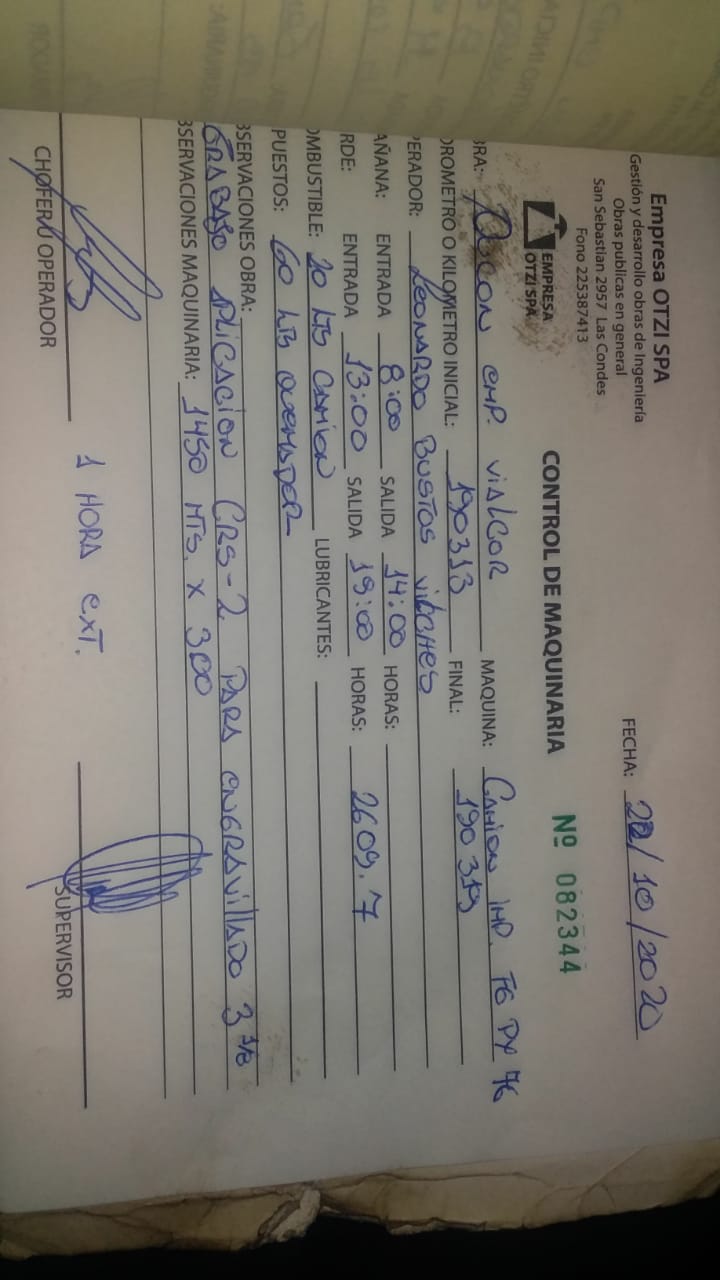 Empresa OTZI SPA
Gestión y desarrollo obras de Ingeniería
Obras publicas en general
San Sebastian 2957 Las Condes
Fono 225387413
FECHA: 22/10/2020
EMPRESA
OTZI SPA
CONTROL DE MAQUINARIA Nº 082344
BRA: EMP. VIALCOR MAQUINA: CAMION IMP. FG PX 76
OROMETRO O KILOMETRO INICIAL: 190313 FINAL: 190319
PERADOR: LEONARDO BUSTOS VILCHES
AÑANA: ENTRADA 8:00 SALIDA 14:00 HORAS:
RDE: ENTRADA 13:00 SALIDA 19:00 HORAS: 2609.7
OMBUSTIBLE: 20 LTS CAMION LUBRICANTES:
PUESTOS: 60 LTS QUEMADER
BSERVACIONES OBRA:
TRABAJO APLICACION CRS-2 PARA ENGRAVILLADO 3
BSERVACIONES MAQUINARIA: 1450 MTS. X 300
1 HORA EXT.
CHOFER U OPERADOR SUPERVISOR